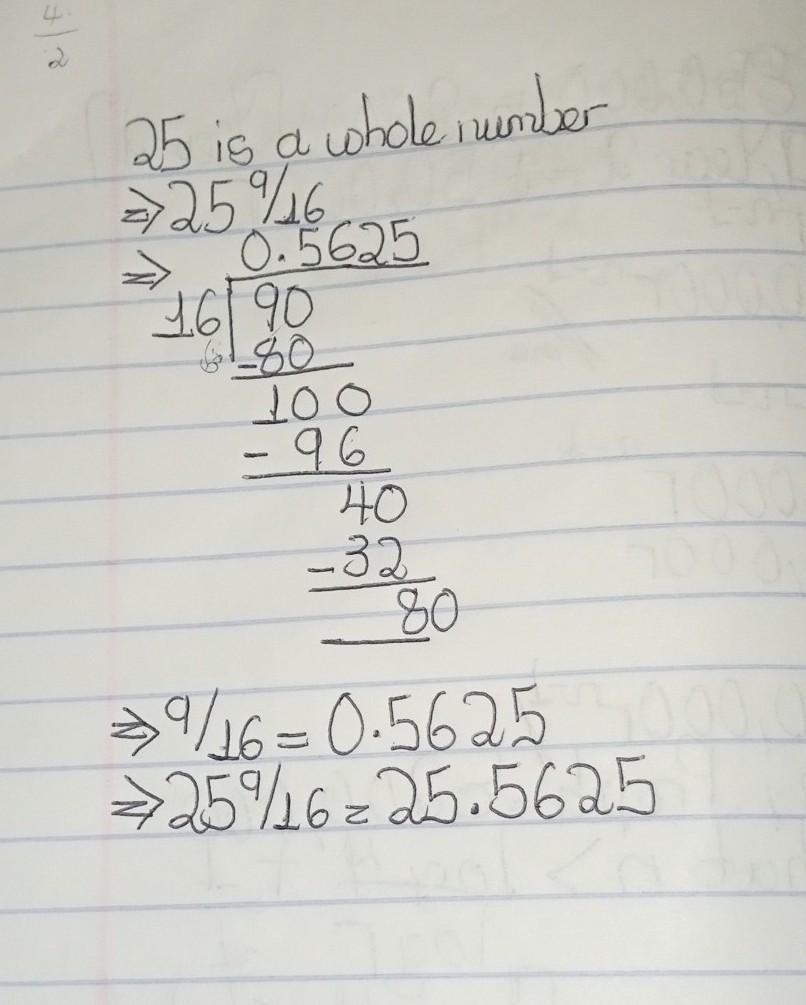 4
2
25 is a whole number
⇒ 25 9/16
⇒ 0.5625
16 90
-80
100
- 96
40
-32
80
⇒ 9/16 = 0.5625
⇒ 25 9/16 = 25.5625